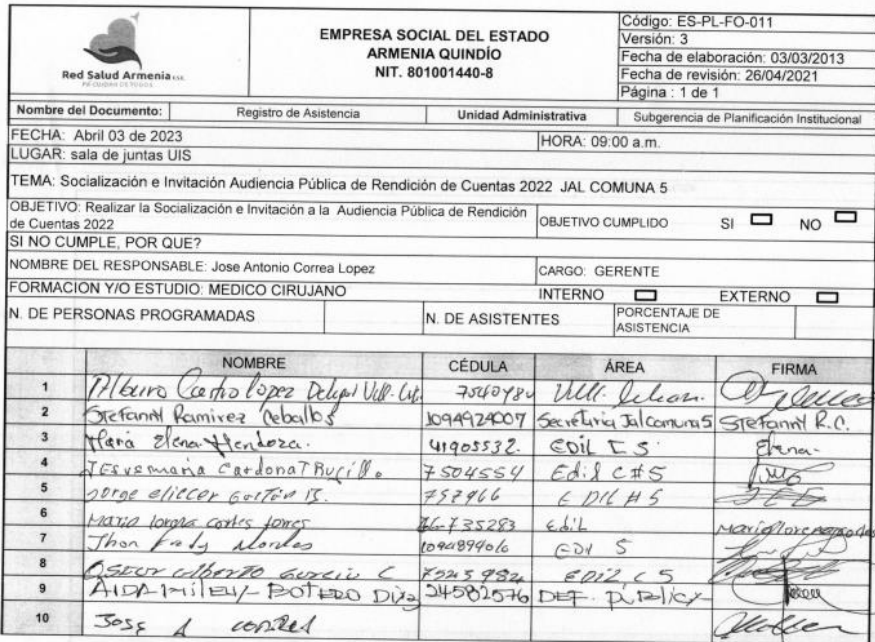 Red Salud Armenia E.S.E.
EMPRESA SOCIAL DEL ESTADO
ARMENIA QUINDÍO
NIT. 801001440-8
Código: ES-PL-FO-011
Versión: 3
Fecha de elaboración: 03/03/2013
Fecha de revisión: 26/04/2021
Página : 1 de 1
Nombre del Documento: Registro de Asistencia Unidad Administrativa Subgerencia de Planificación Institucional
FECHA: Abril 03 de 2023 HORA: 09:00 a.m.
LUGAR: sala de juntas UIS
TEMA: Socialización e Invitación Audiencia Pública de Rendición de Cuentas 2022 JAL COMUNA 5
OBJETIVO: Realizar la Socialización e Invitación a la Audiencia Pública de Rendición
de Cuentas 2022
OBJETIVO CUMPLIDO SI NO
SI NO CUMPLE, POR QUE?
NOMBRE DEL RESPONSABLE: Jose Antonio Correa Lopez CARGO: GERENTE
FORMACION Y/O ESTUDIO: MEDICO CIRUJANO INTERNO EXTERNO
N. DE PERSONAS PROGRAMADAS N. DE ASISTENTES PORCENTAJE DE
ASISTENCIA
NOMBRE CÉDULA ÁREA FIRMA
1 Castro Lopez
2 Stefanny Ramirez Ceballos 1094924007 Secretaria Jal comuna 5 Stefanny R.C.
3 Maria Elena Mendoza. 41905532. EDIL C 5 Elena-
4 Jesus maria Cardona 7504554 Edil C # 5
5 Jorge eliecer 757966 EDIL # 5
6 Maria lorena cortes torres 735283 Edil
7 Jhon Fredy 1094894016 5
8 Oscar Alberto Garcia C EDIL C 5
9 AIDA MILENY BOTERO 24582576 DEF. PUBLICA
10 Jose A correa